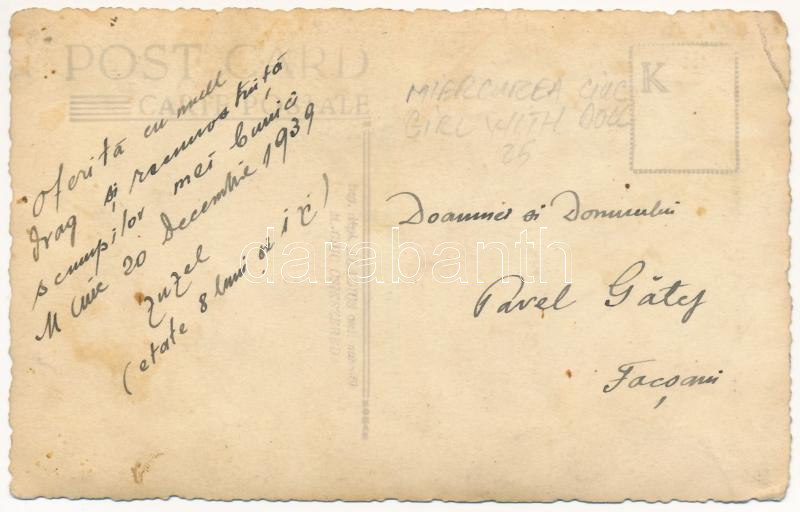 POST CARD
CARTE POSTALE
Oferită cu mult
drag și recunoștință
scumpilor mei bunici
M Ciuc 20 Decembrie 1939
(etate 8 luni și 1 zi)
MIERCUREA CIUC
GIRL WITH DOLL
25
K
Doamnei și Domnului
Pavel
Focșani
darabanth